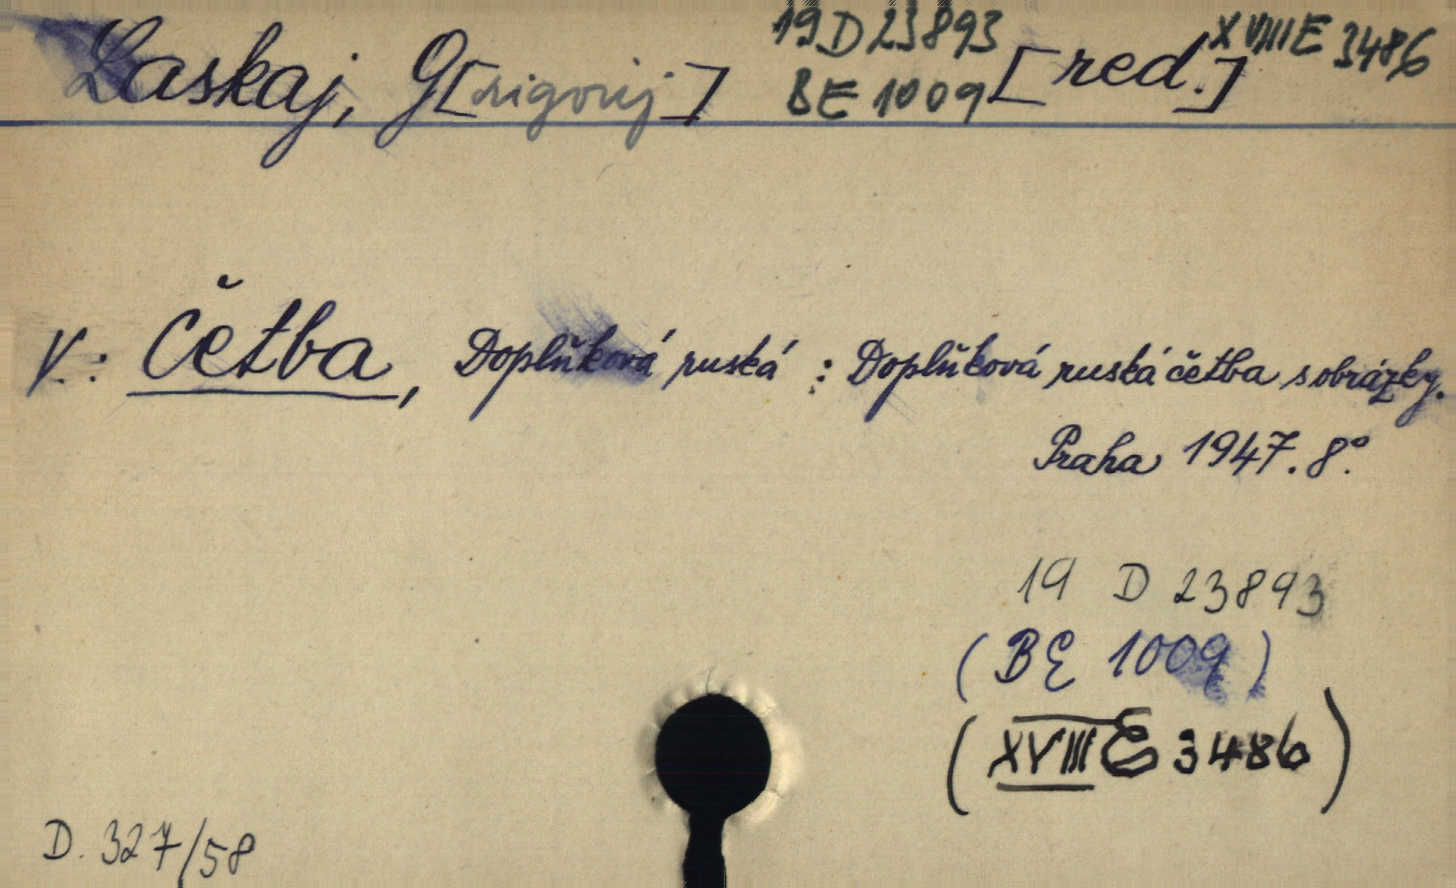 Laskaj, G[rigorij] 19 D 23893 [red.] XVIII E 3486
BE 1009
V: Četba, Doplňková ruská : Doplňková ruská četba s obrázky.
Praha 1947. 8°.
19 D 23893
(BE 1009)
(XVIII E 3486)
D. 327/58